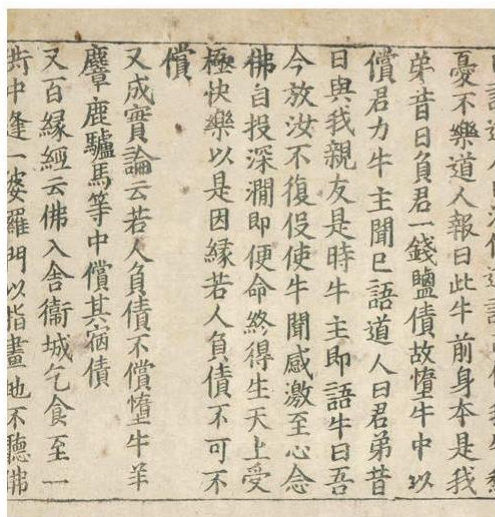 憂不樂道人報曰此牛前身本是我
弟昔日負君一錢鹽債故墮牛中以
償君力牛主聞巳語道人曰君弟昔
日與我親友是時牛主即語牛曰吾
今放汝不復伇使牛聞感激至心念
佛自投深澗即便命終得生天上受
極快樂以是因緣若人負債不可不
償
又成實論云若人負債不償墮牛羊
麞鹿驢馬等中償其宿債
又百緣經云佛入舍衞城乞食至一
中逢一婆羅門以指畫地不聽佛